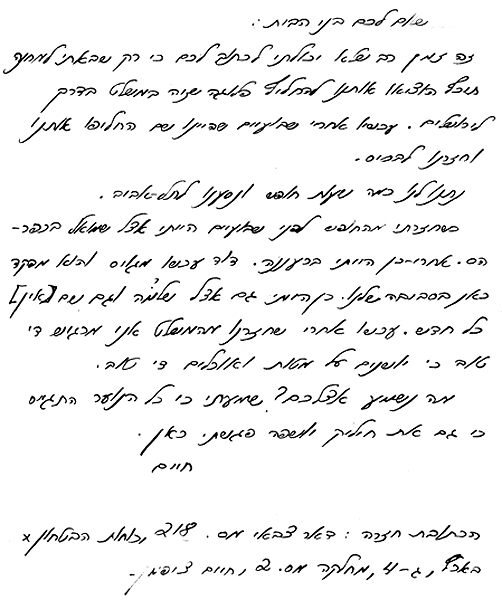 שלום לכם בני הבית :.
זה זמן רב שלא יכולתי לכתוב לכם כי רק שבאתי למחנה
תיכף הוציאו אותנו להחליף פלוגה שניה במשלט בדרך
לירושלים. עכשו אחרי שבועיים שהיינו שם החליפו אותנו
וחזרנו לבסיס.
נתנו לנו כמה שעות חופש ונסענו לתל-אביב.
כשחזרתי מהחופש לפני שבועיים הייתי אצל שמואל בכפר-
הס. אחרי-כן הייתי ברעננה. דוד עכשו מגויס והוא מפקד
כאן בסביבה שלנו. כן הייתי גם אצל שלמה וגם שם [אין]
כל חדש. עכשו אחרי שחזרנו מהמשלט אני מרגיש די
טוב כי יושנים על מטות ואוכלים די טוב.
מה נשמע אצלכם? שמעתי כי כל הנוער התגייס
כי גם את חיליק יושפה פגשתי כאן.
חיים
הכתובת חזרה : דאר צבאי מס. 218, כוחות הבטחון x
בארץ, ג-4, מחלקה מס. 2, חיים ציפמן -